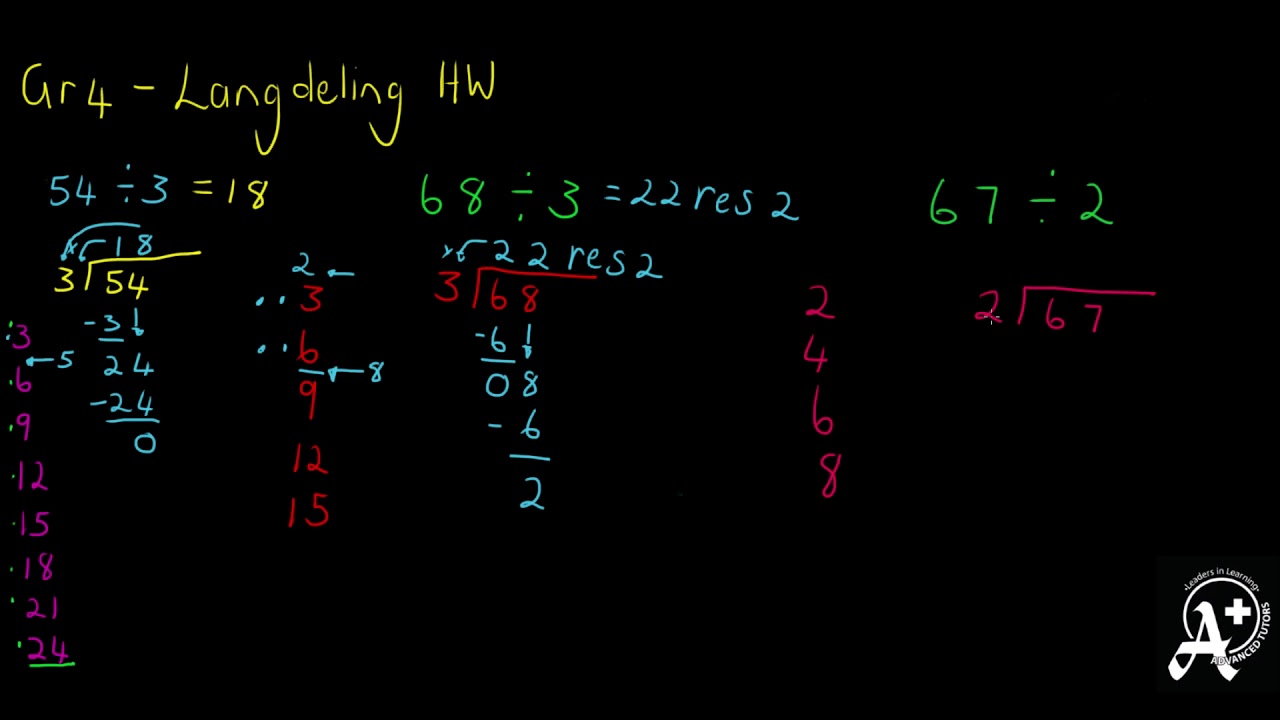 Gr4 - Langdeling HW
54 ÷ 3 = 18
18
3 54
- 3
24
- 24
0
3
6 ← 5
9
12
15
18
21
24
68 ÷ 3 = 22 res 2
2 ←
3
6
← 8
9
12
15
x 22 res 2
3 68
- 6
08
- 6
2
67 ÷ 2
2 67
2
4
6
8
Leaders in Learning
A+
ADVANCED TUTORS